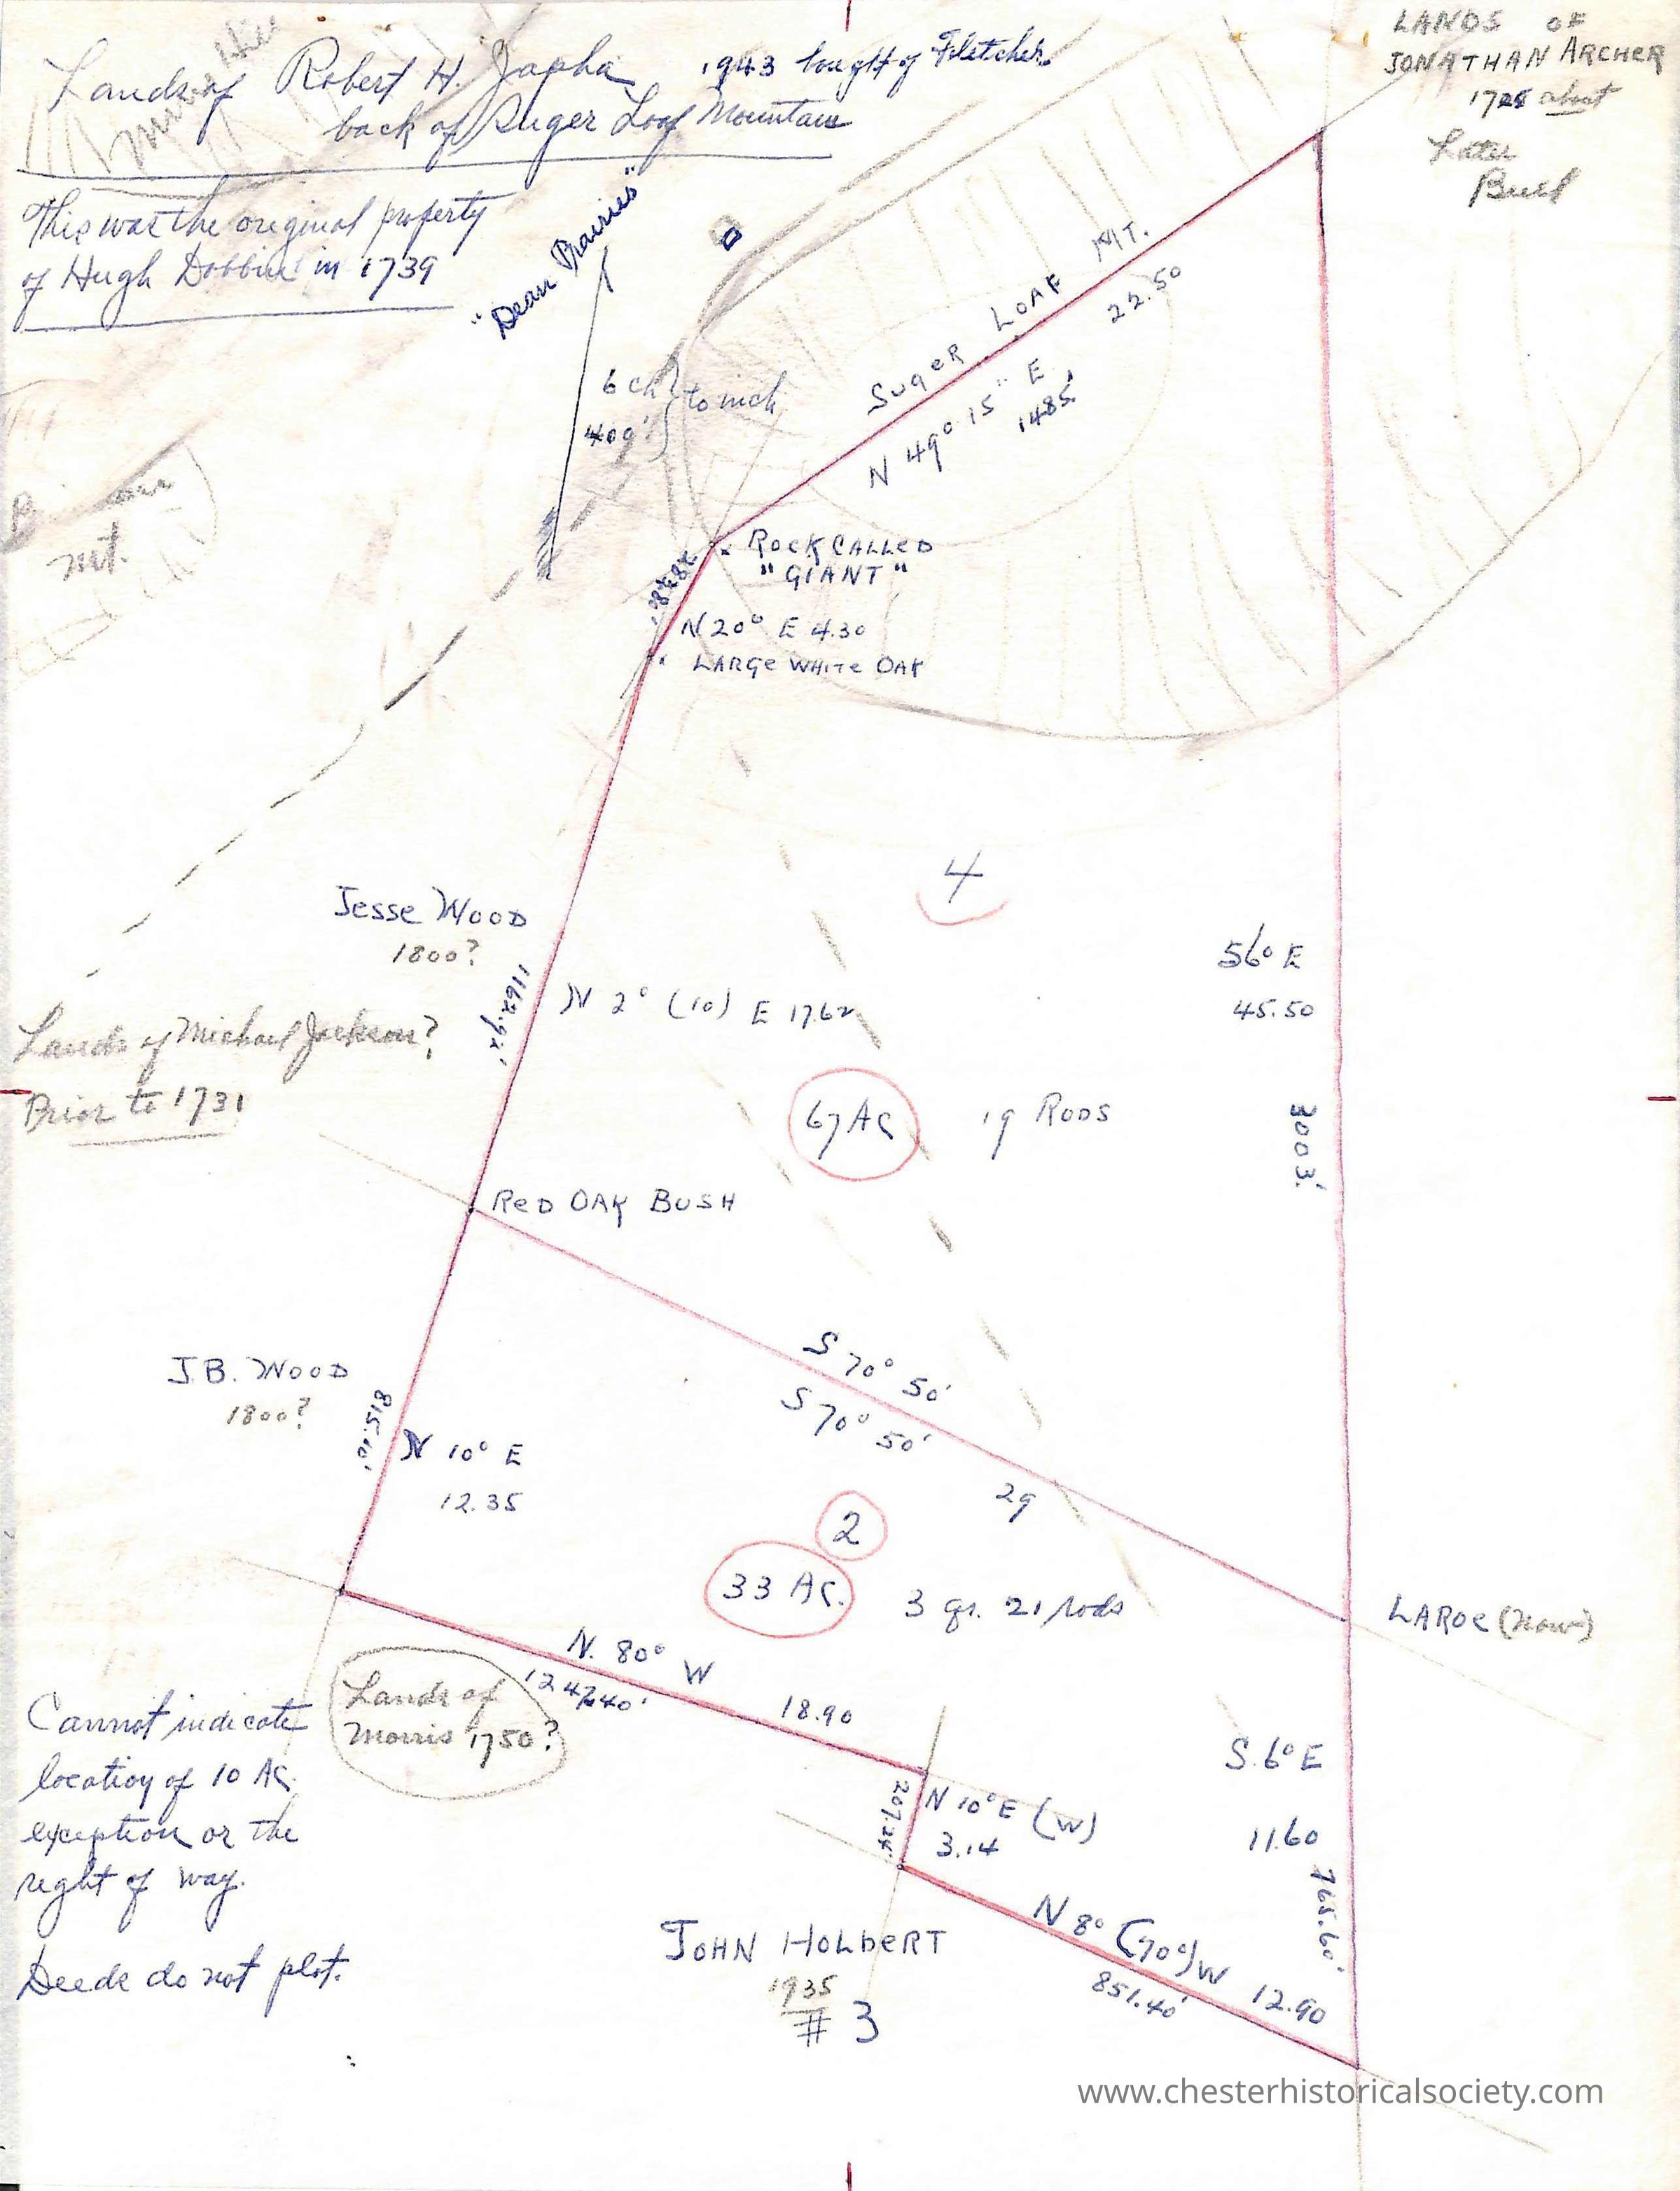 Lands of Robert H. Japha 1943 bought of Fletcher
back of Suger Loaf Mountain
This was the original property
of Hugh Dobbin in 1739
LANDS OF
JONATHAN ARCHER
about
Later
Bull
"Dean Prairies"
6 ch
to inch
SUGER LOAF MT.
22.50
N 49° 15" E
1485'
mt.
ROCK CALLED
"GIANT"
N 20° E 4.30
LARGE WHITE OAK
4
Jesse WOOD
1800?
56° E
45.50
N 2° (10) E 17.62
1162.92'
Lands of Michael Jackson?
Prior to 1731
67 AC 19 RODS
3003'
RED OAK BUSH
S 70° 50'
S 70° 50'
29
J.B. WOOD
1800?
815.10'
N 10° E
12.35
2
33 AC. 3 qr. 21 rods
LAROE (now)
N. 80° W
18.90
Lands of
Morris 1750?
Cannot indicate
location of 10 AC
exception or the
right of way.
Deeds do not plot.
S. 6° E
11.60
765.60'
N 10° E (W)
3.14
207.24'
N 8° (70°) W 12.90
851.40'
JOHN HOLBERT
1935
# 3
www.chesterhistoricalsociety.com